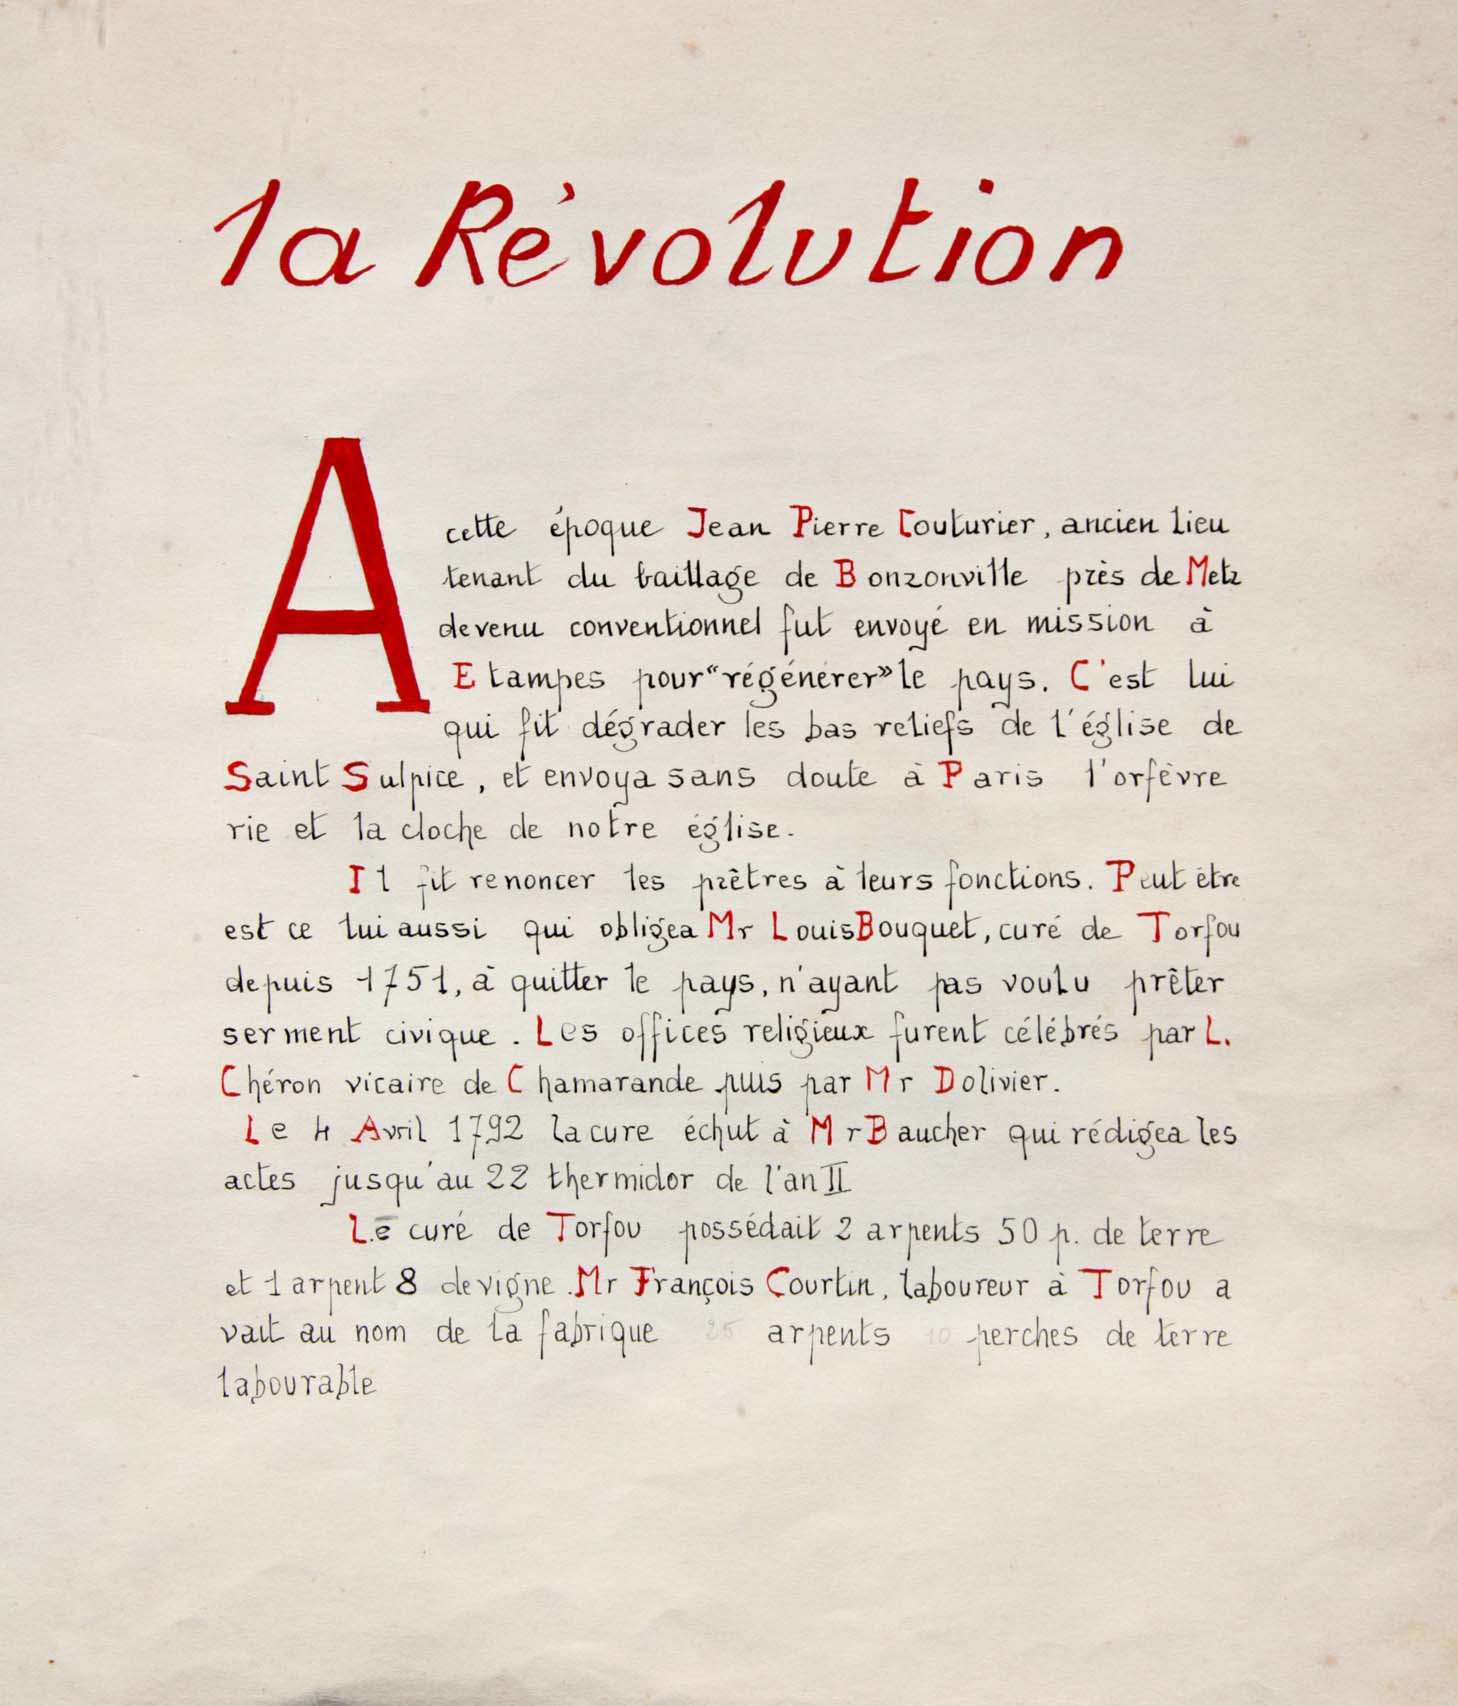 la Révolution
A cette époque Jean Pierre Couturier, ancien lieu
tenant du baillage de Bonzonville près de Metz
devenu conventionnel fut envoyé en mission à
Etampes pour "régénérer" le pays. C'est lui
qui fit dégrader les bas reliefs de l'église de
Saint Sulpice, et envoya sans doute à Paris l'orfèvre
rie et la cloche de notre église.
Il fit renoncer les prêtres à leurs fonctions. Peut être
est ce lui aussi qui obligea Mr Louis Bouquet, curé de Torfou
depuis 1751, à quitter le pays, n'ayant pas voulu prêter
serment civique. Les offices religieux furent célébrés par L.
Chéron vicaire de Chamarande puis par Mr Dolivier.
Le 4 Avril 1792 la cure échut à Mr Baucher qui rédigea les
actes jusqu'au 22 thermidor de l'an II
Le curé de Torfou possédait 2 arpents 50 p. de terre
et 1 arpent 8 de vigne. Mr François Courtin, laboureur à Torfou a
vait au nom de la fabrique 25 arpents 10 perches de terre
labourable